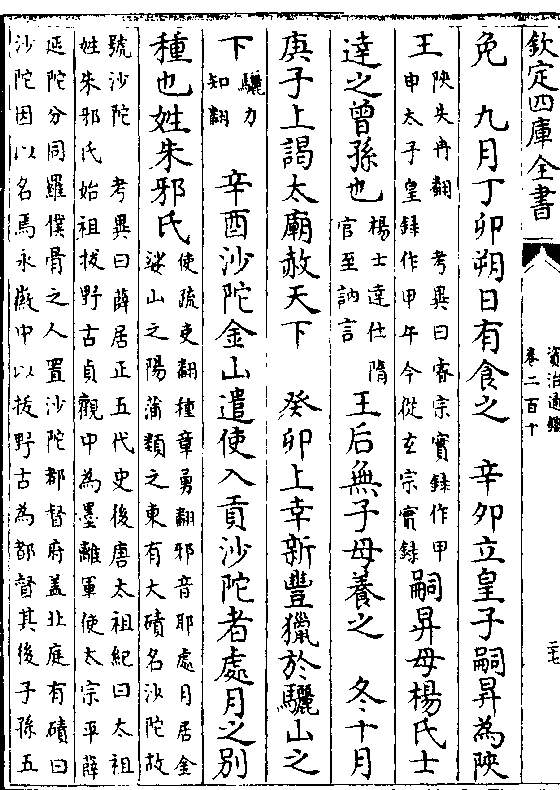 欽定四庫全書
資治通鑑
卷二百十
二七
免　九月丁卯朔日有食之　辛卯立皇子嗣昇為陝
王陝失冉翻　考異曰睿宗實錄作甲
申太子皇錄作甲午今從玄宗實錄嗣昇母楊氏士
達之曾孫也楊士達仕隋
官至訥言王后無子母養之　冬十月
庚子上謁太廟赦天下　癸卯上幸新豐獵於驪山之
下驪力
知翻　辛酉沙陀金山遣使入貢沙陀者處月之別
種也姓朱邪氏使疏吏翻種章勇翻邪音耶處月居金
娑山之陽蒲類之東有大磧名沙陀故
號沙陀　考異曰薛居正五代史後唐太祖紀曰太祖
姓朱邪氏始祖拔野古貞觀中為墨離軍使太宗平薛
延陀分同羅僕骨之人置沙陀都督府盖北庭有磧曰
沙陀因以名焉永徽中以拔野古為都督其後子孫五